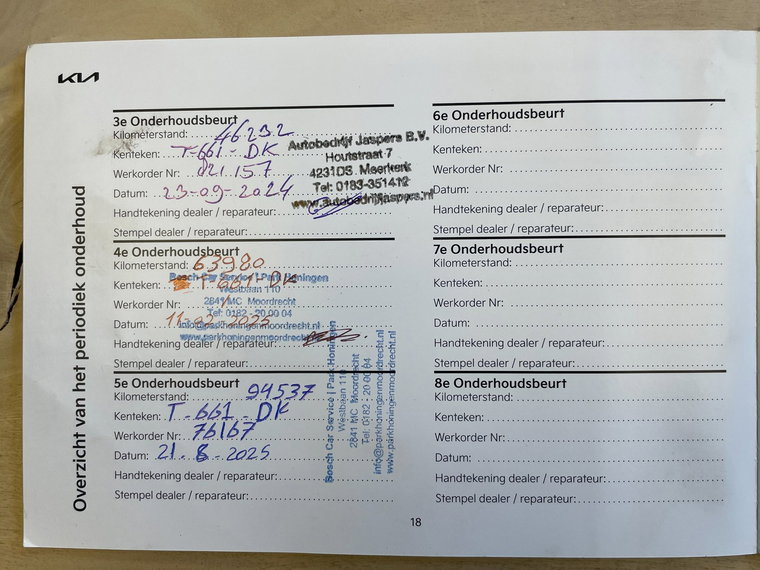 KIA
Overzicht van het periodiek onderhoud
3e Onderhoudsbeurt
Kilometerstand: 46232
Kenteken: T-661-DK
Werkorder Nr: 021.157
Datum: 23-09-2024
Handtekening dealer / reparateur:
Stempel dealer / reparateur:
Autobedrijf Jaspers B.V.
Houtstraat 7
4231DS Meerkerk
Tel: 0183-351412
www.autobedrijfjaspers.nl
4e Onderhoudsbeurt
Kilometerstand: 63980
Kenteken: T-661-DK
Werkorder Nr:
Datum: 11-02-2025
Handtekening dealer / reparateur:
Stempel dealer / reparateur:
Bosch Car Service | Park Honingen
Westbaan 110
2841 MC Moordrecht
Tel: 0182 - 20 00 04
info@parkhoningenmoordrecht.nl
www.parkhoningenmoordrecht.nl
5e Onderhoudsbeurt
Kilometerstand: 94537
Kenteken: T-661-DK
Werkorder Nr: 76167
Datum: 21.8-2025
Handtekening dealer / reparateur:
Stempel dealer / reparateur:
Bosch Car Service | Park Honingen
Westbaan 110
2841 MC Moordrecht
Tel: 0182 - 20 00 04
info@parkhoningenmoordrecht.nl
www.parkhoningenmoordrecht.nl
6e Onderhoudsbeurt
Kilometerstand:
Kenteken:
Werkorder Nr:
Datum:
Handtekening dealer / reparateur:
Stempel dealer / reparateur:
7e Onderhoudsbeurt
Kilometerstand:
Kenteken:
Werkorder Nr:
Datum:
Handtekening dealer / reparateur:
Stempel dealer / reparateur:
8e Onderhoudsbeurt
Kilometerstand:
Kenteken:
Werkorder Nr:
Datum:
Handtekening dealer / reparateur:
Stempel dealer / reparateur:
18